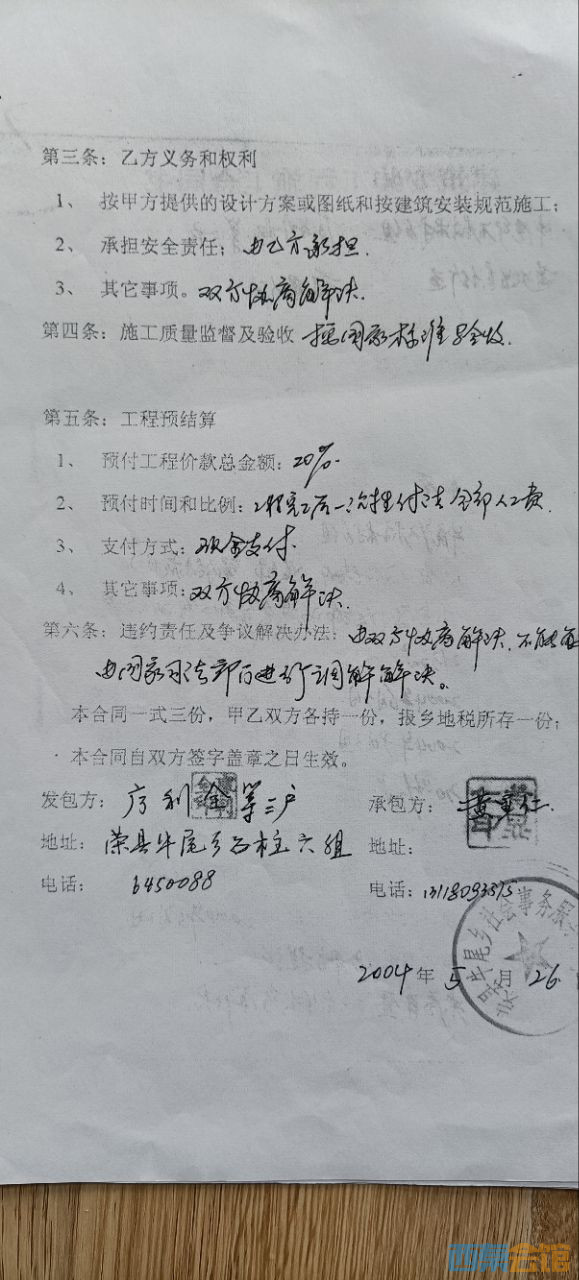 第三条：乙方义务和权利
1、 按甲方提供的设计方案或图纸和按建筑安装规范施工；
2、 承担安全责任；由乙方承担.
3、 其它事项。双方协商解决.
第四条：施工质量监督及验收 按国家标准验收.
第五条：工程预结算
1、 预付工程价款总金额：20%.
2、 预付时间和比例：工程完工后一次性付清全部人工费.
3、 支付方式：现金支付.
4、 其它事项：双方协商解决.
第六条：违约责任及争议解决办法：由双方协商解决.不能
由国家司法部门进行调解解决。
本合同一式三份，甲乙双方各持一份，报乡地税所存一份；
本合同自双方签字盖章之日生效。
发包方： 利金等三户 承包方：
地址： 荣县牛尾乡石柱六组 地址：
电话： 6450088 电话：
牛尾乡社会事务服
2004年5月26
西祠会馆